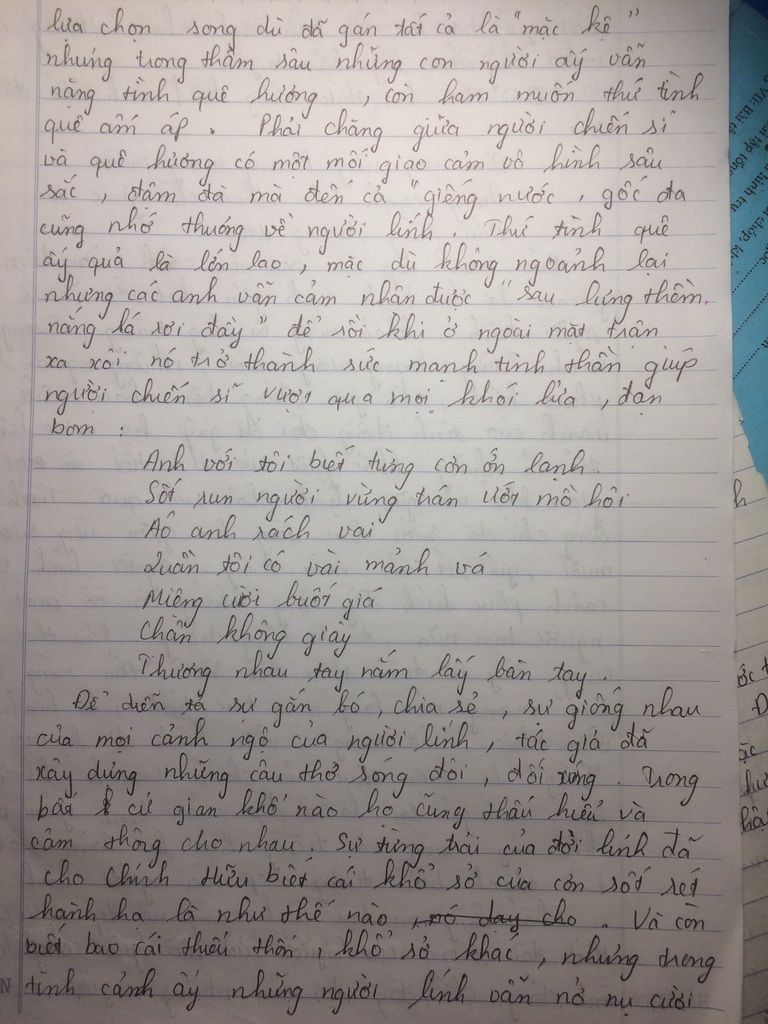 lựa chọn song dù đã gán tất cả là "mặc kệ"
nhưng trong thâm sâu những con người ấy vẫn
nặng tình quê hương, còn ham muốn thứ tình
quê ấm áp. Phải chăng giữa người chiến sĩ
và quê hương có một mối giao cảm vô hình sâu
sắc, đậm đà mà đến cả "giếng nước, gốc đa
cũng nhớ thương về người lính. Thứ tình quê
ấy quả là lớn lao, mặc dù không ngoảnh lại
nhưng các anh vẫn cảm nhận được "sau lưng thềm,
nắng lá rơi đầy" để rồi khi ở ngoài mặt trận
xa xôi nó trở thành sức mạnh tinh thần giúp
người chiến sĩ vượt qua mọi khói lửa, đạn
bom:
Anh với tôi biết từng cơn ớn lạnh.
Sốt run người vừng trán ướt mồ hôi
Áo anh rách vai
Quần tôi có vài mảnh vá
Miệng cười buốt giá
Chân không giày
Thương nhau tay nắm lấy bàn tay.
Để diễn tả sự gắn bó, chia sẻ, sự giống nhau
của mọi cảnh ngộ của người lính, tác giả đã
xây dựng những câu thơ sóng đôi, đối xứng. Trong
bất cứ gian khổ nào họ cũng thấu hiểu và
cảm thông cho nhau. Sự từng trải của đời lính đã
cho Chính Hữu biết cái khổ sở của cơn sốt rét
hành hạ là như thế nào, nó day cho. Và còn
biết bao cái thiếu thốn, khổ sở khác, nhưng trong
tình cảnh ấy những người lính vẫn nở nụ cười